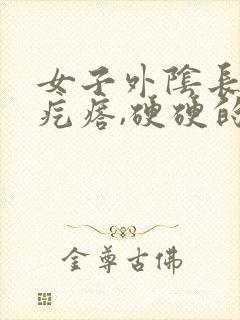 女子外陰長
疙瘩,硬硬的
金尊古佛